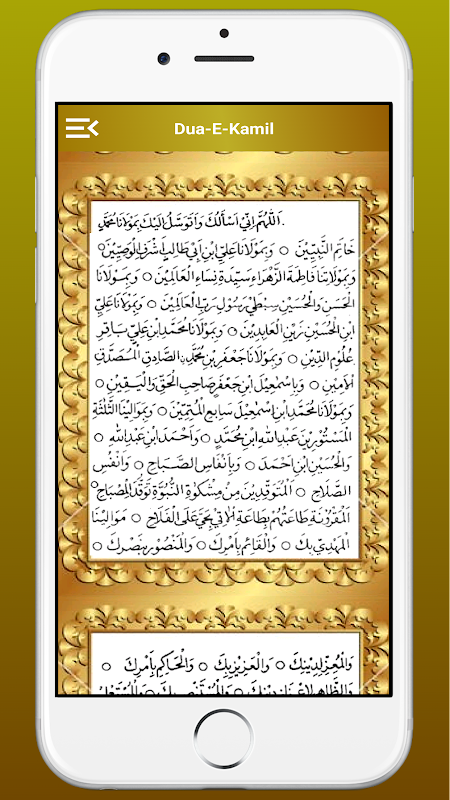 Dua-E-Kamil
اَللّٰهُمَّ اِنِّيْ اَسْاَلُكَ وَاَتَوَسَّلُ اِلَيْكَ بِمَوْلَانَا مُحَمَّدٍ
خَاتِمِ النَّبِيِّيْنَ ○ وَبِمَوْلَانَا عَلِيِّ ابْنِ اَبِيْ طَالِبٍ اَشْرَفِ الْوَصِيِّيْنَ ○
وَبِمَوْلَاتِنَا فَاطِمَةَ الزَّهْرَاءِ سَيِّدَةِ نِسَاءِ الْعَالَمِيْنَ ○ وَبِمَوْلَانَا
الْحَسَنِ وَالْحُسَيْنِ سِبْطَيْ رَسُوْلِ رَبِّ الْعَالَمِيْنَ ○ وَبِمَوْلَانَا عَلِيِّ
ابْنِ الْحُسَيْنِ زَيْنِ الْعَابِدِيْنَ ○ وَبِمَوْلَانَا مُحَمَّدِ ابْنِ عَلِيٍّ بَاقِرِ
عُلُوْمِ الدِّيْنِ ○ وَبِمَوْلَانَا جَعْفَرِ بْنِ مُحَمَّدٍ الصَّادِقِ الْمُصَدَّقِ
الْاَمِيْنِ ○ وَبِاِسْمٰعِيْلَ ابْنِ جَعْفَرٍ صَاحِبِ الْحَقِّ وَالْيَقِيْنِ ○
وَبِمَوْلَانَا مُحَمَّدِ ابْنِ اِسْمٰعِيْلَ سَابِعِ الْمُتِمِّيْنَ ○ وَبِمَوَالِيْنَا الثَّلٰثَةِ
الْمَسْتُوْرِيْنَ عَبْدِ اللهِ ابْنِ مُحَمَّدٍ ○ وَاَحْمَدَ ابْنِ عَبْدِ اللهِ ○
وَالْحُسَيْنِ ابْنِ اَحْمَدَ ○ وَبِاَنْفَاسِ الصَّبَاحِ ○ وَاَنْفُسِ
الصَّلَاحِ ○ الْمُتَوَقِّدِيْنَ مِنْ مِشْكٰوةِ النُّبُوَّةِ تَوَقُّدَ الْمِصْبَاحِ ○
الْمَقْرُوْنَةِ طَاعَتُهُمْ بِطَاعَةِ حَيَّ عَلَى الْفَلَاحِ ○ مَوَالِيْنَا
الْمَهْدِيِّ بِكَ ○ وَالْقَائِمِ بِاَمْرِكَ ○ وَالْمَنْصُوْرِ بِنَصْرِكَ ○
وَالْمُعِزِّ لِدِيْنِكَ ○ وَالْعَزِيْزِ بِكَ ○ وَالْحَاكِمِ بِاَمْرِكَ ○